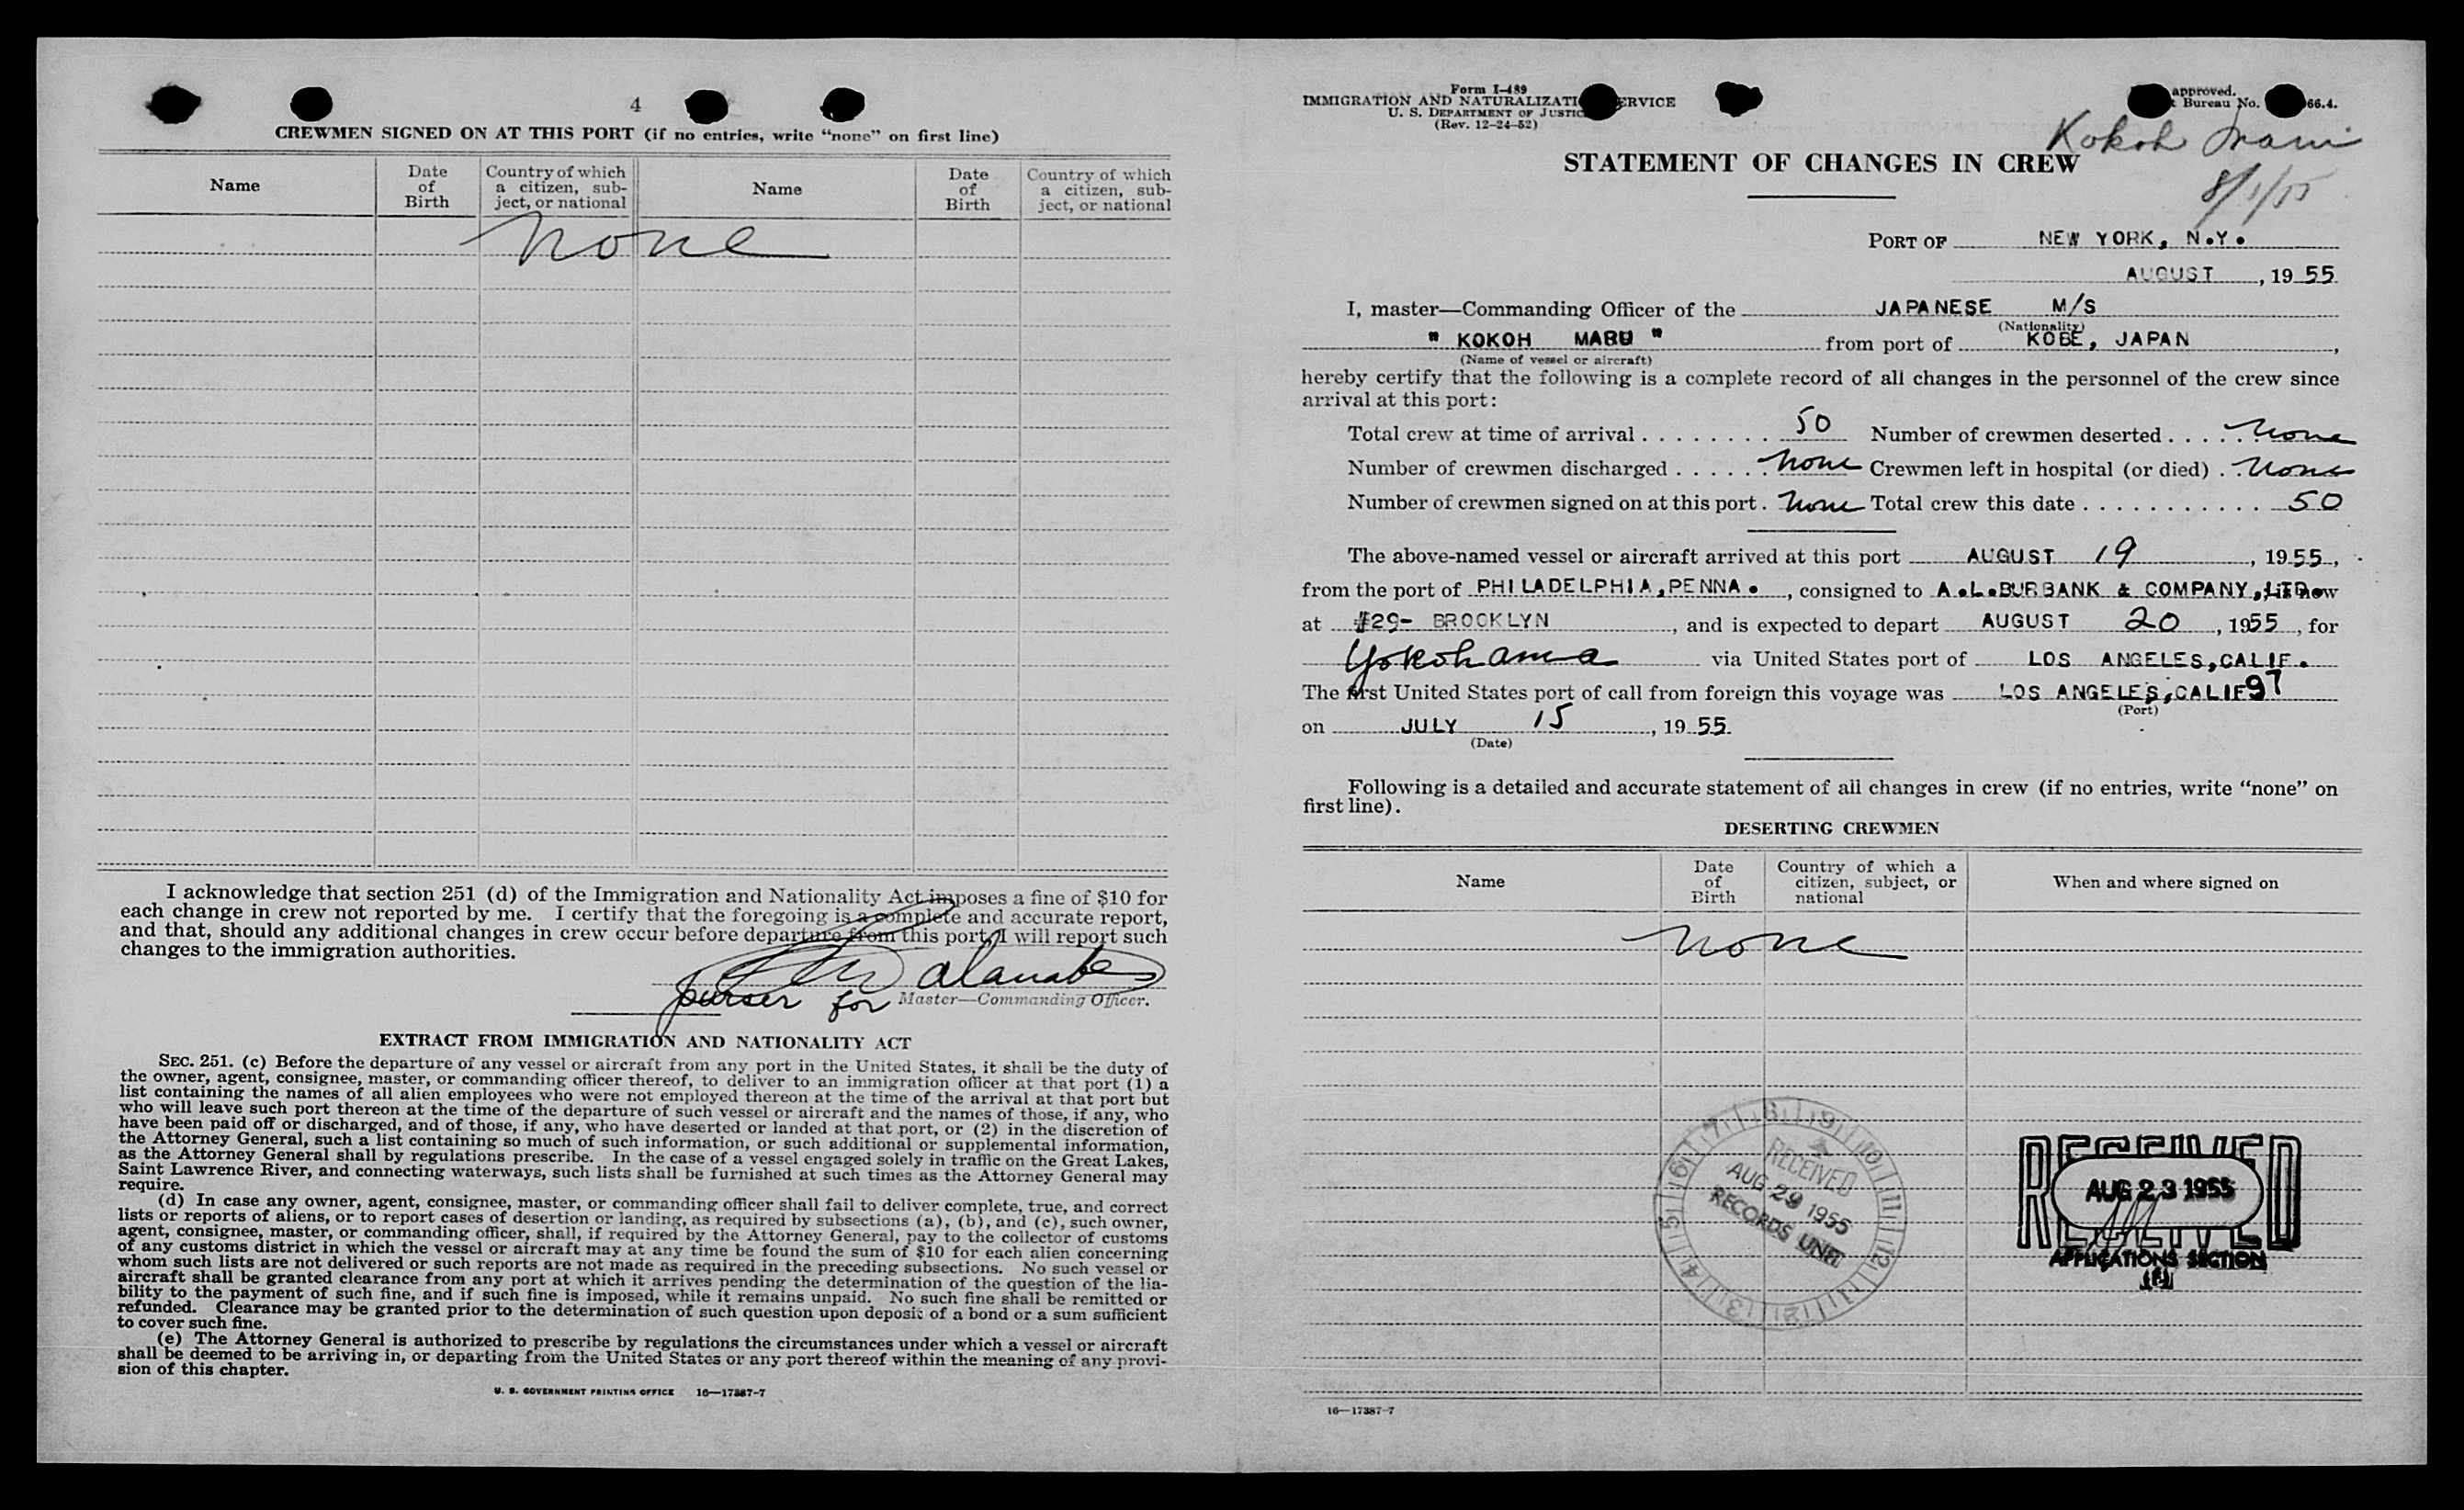 4
CREWMEN SIGNED ON AT THIS PORT (if no entries, write “none” on first line)
Name
Date of Birth
Country of which a citizen, sub-ject, or national
Name
Date of Birth
Country of which a citizen, sub-ject, or national
none
I acknowledge that section 251 (d) of the Immigration and Nationality Act imposes a fine of $10 for
each change in crew not reported by me. I certify that the foregoing is a complete and accurate report,
and that, should any additional changes in crew occur before departure from this port, I will report such
changes to the immigration authorities.
purser for Master—Commanding Officer.
EXTRACT FROM IMMIGRATION AND NATIONALITY ACT
SEC. 251. (c) Before the departure of any vessel or aircraft from any port in the United States, it shall be the duty of
the owner, agent, consignee, master, or commanding officer thereof, to deliver to an immigration officer at that port (1) a
list containing the names of all alien employees who were not employed thereon at the time of the arrival at that port but
who will leave such port thereon at the time of the departure of such vessel or aircraft and the names of those, if any, who
have been paid off or discharged, and of those, if any, who have deserted or landed at that port, or (2) in the discretion of
the Attorney General, such a list containing so much of such information, or such additional or supplemental information,
as the Attorney General shall by regulations prescribe. In the case of a vessel engaged solely in traffic on the Great Lakes,
Saint Lawrence River, and connecting waterways, such lists shall be furnished at such times as the Attorney General may
require.
(d) In case any owner, agent, consignee, master, or commanding officer shall fail to deliver complete, true, and correct
lists or reports of aliens, or to report cases of desertion or landing, as required by subsections (a), (b), and (c), such owner,
agent, consignee, master, or commanding officer, shall, if required by the Attorney General, pay to the collector of customs
of any customs district in which the vessel or aircraft may at any time be found the sum of $10 for each alien concerning
whom such lists are not delivered or such reports are not made as required in the preceding subsections. No such vessel or
aircraft shall be granted clearance from any port at which it arrives pending the determination of the question of the lia-
bility to the payment of such fine, and if such fine is imposed, while it remains unpaid. No such fine shall be remitted or
refunded. Clearance may be granted prior to the determination of such question upon deposit of a bond or a sum sufficient
to cover such fine.
(e) The Attorney General is authorized to prescribe by regulations the circumstances under which a vessel or aircraft
shall be deemed to be arriving in, or departing from the United States or any port thereof within the meaning of any provi-
sion of this chapter.
U. S. GOVERNMENT PRINTING OFFICE 16—17387-7
Form I-489
IMMIGRATION AND NATURALIZATI ERVICE
U. S. DEPARTMENT OF JUSTIC
(Rev. 12-24-52)
approved.
Bureau No. 66.4.
Kokoh
STATEMENT OF CHANGES IN CREW
PORT OF NEW YORK, N.Y.
AUGUST, 19 55
I, master—Commanding Officer of the JAPANESE M/S
(Nationality)
" KOKOH MARU " from port of KOBE, JAPAN,
(Name of vessel or aircraft)
hereby certify that the following is a complete record of all changes in the personnel of the crew since
arrival at this port:
Total crew at time of arrival . . . . . . . . 50 Number of crewmen deserted . . . . . None
Number of crewmen discharged . . . . . . None Crewmen left in hospital (or died) . . None
Number of crewmen signed on at this port . None Total crew this date . . . . . . . . . . . 50
The above-named vessel or aircraft arrived at this port AUGUST 19, 1955,
from the port of PHILADELPHIA,PENNA., consigned to A.L.BURBANK & COMPANY,LTD. now
at #29- BROOKLYN, and is expected to depart AUGUST 20, 1955, for
Yokohama via United States port of LOS ANGELES,CALIF.
The first United States port of call from foreign this voyage was LOS ANGELES,CALIF 97
(Port)
on JULY 15, 19 55.
(Date)
Following is a detailed and accurate statement of all changes in crew (if no entries, write “none” on
first line).
DESERTING CREWMEN
Name
Date of Birth
Country of which a citizen, subject, or national
When and where signed on
none
RECEIVED
AUG 29 1955
RECORDS UNIT
RECEIVED
AUG 23 1955
APPLICATIONS SECTION
16—17387-7